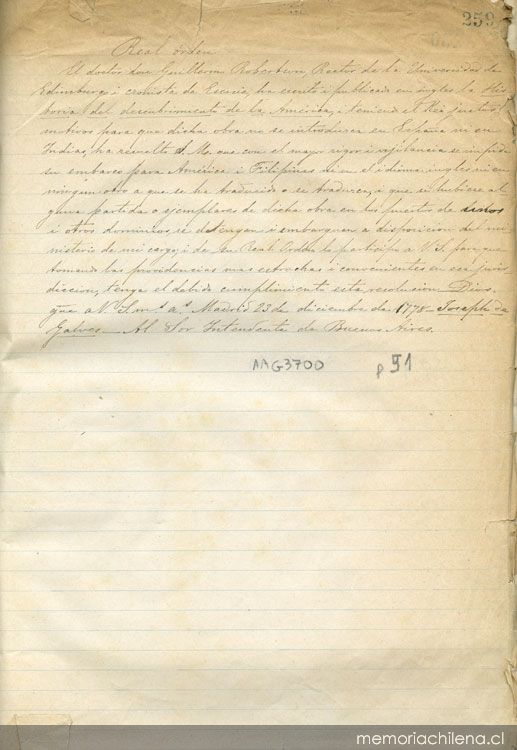 259
Real órden
El doctor don Guillermo Robertson, Rector de la Universidad de
Edimburgo i cronista de Escocia, ha escrito i publicado en ingles la His-
toria del descubrimiento de la América, i teniendo el Rei justos
motivos para que dicha obra no se introduzca en España ni en
Indias, ha resuelto S. M. que con el mayor rigor i vijilancia se impida
su embarco para América i Filipinas ni en el idioma ingles ni en
ningun otro a que se ha traducido o se traduzca, i que si hubiere al-
guna partida o ejemplares de dicha obra en los puertos de unos
i otros dominios, se detengan i embarguen a disposicion del mi-
nisterio de mi cargo; i de su Real Orden lo participo a V. S. para que
tomando las providencias mas estrechas i convenientes en esa juris-
diccion, tenga el debido cumplimiento esta resolucion. Dios
gue a V. S. m.s a.s Madrid 23 de diciembre de 1778 Joseph de
Galvez Al Sor Intendente de Buenos Aires.
AAG3700 p 91
memoriachilena.cl